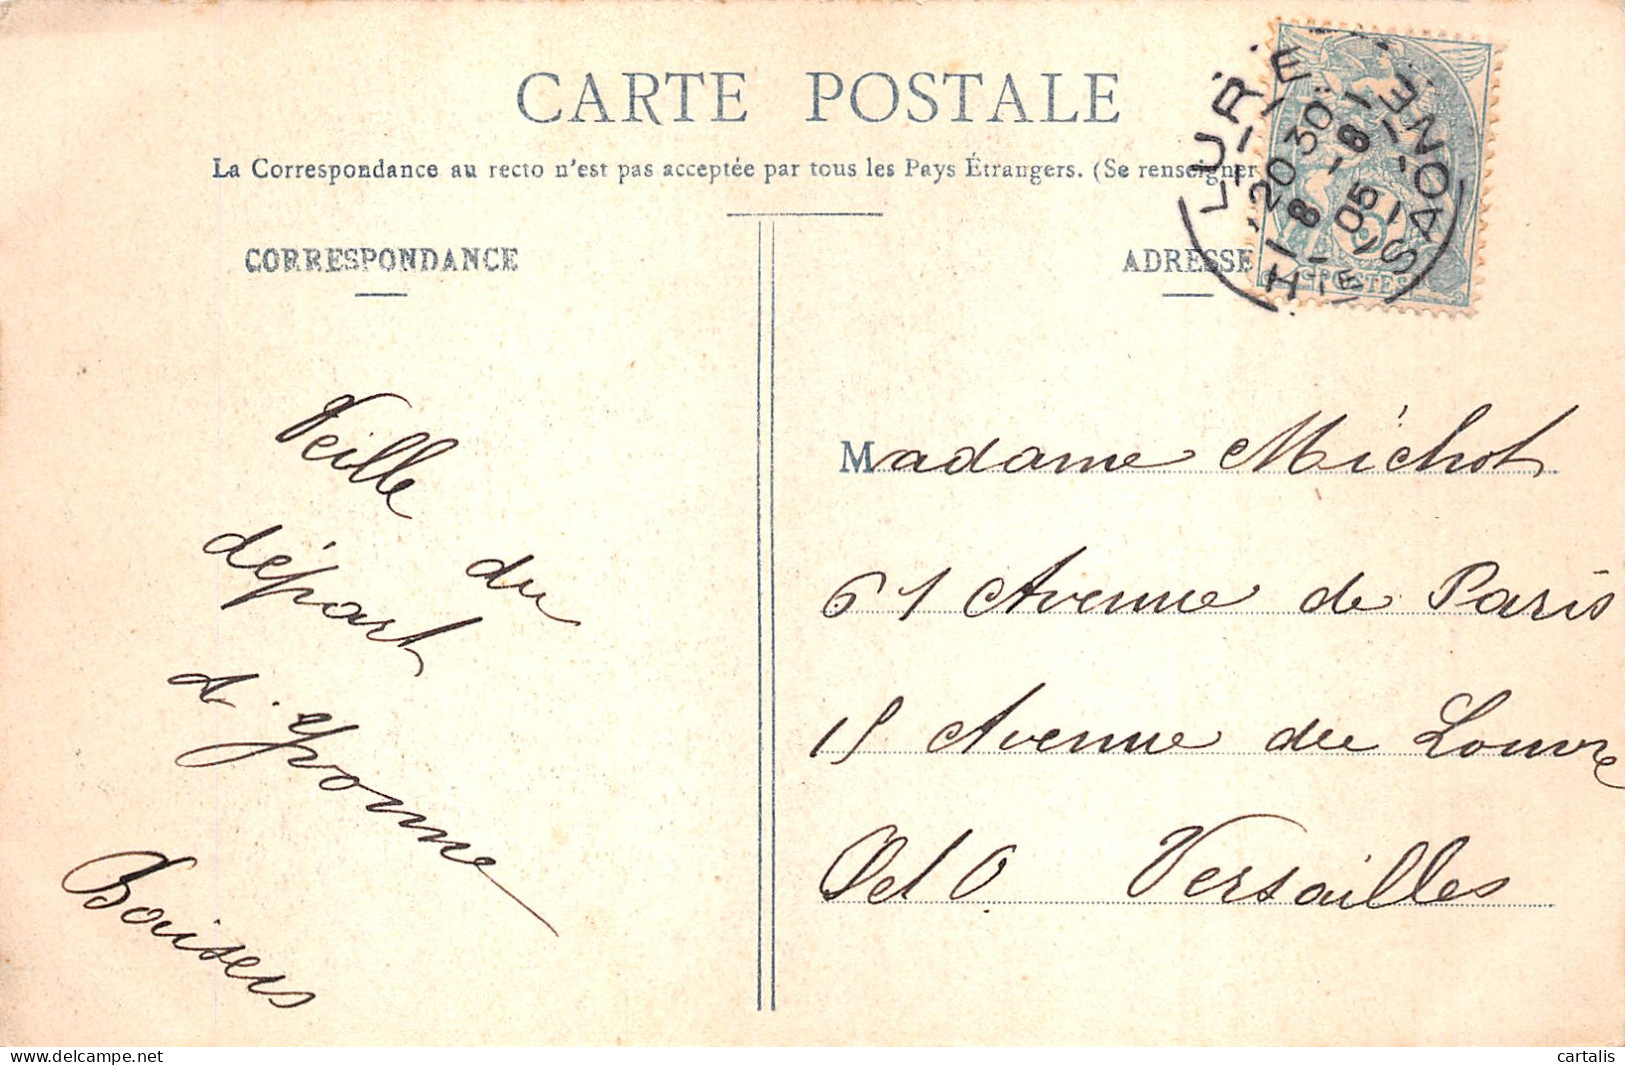 CARTE POSTALE
La Correspondance au recto n'est pas acceptée par tous les Pays Étrangers. (Se renseigner
CORRESPONDANCE
ADRESSE
LURE
20 30
8 -8
05
HTE SAONE
POSTES
Veille du
départ
d'Yvonne
Baisers
Madame Michot
61 Avenue de Paris
15 Avenue du Louvre
S et O. Versailles
delcampe.net
cartalis